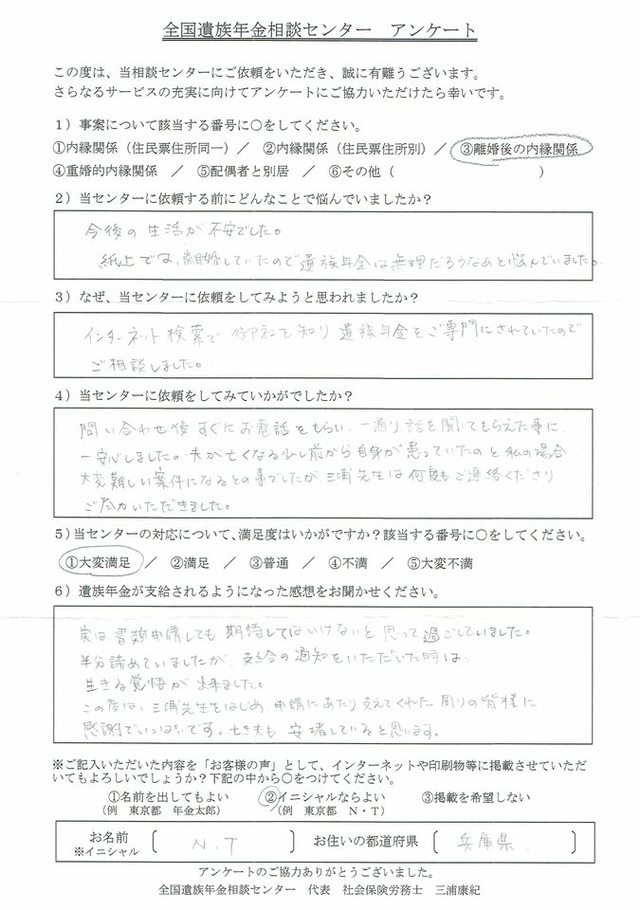 全国遺族年金相談センター　アンケート
この度は、当相談センターにご依頼をいただき、誠に有難うございます。
さらなるサービスの充実に向けてアンケートにご協力いただけたら幸いです。
１）事案について該当する番号に〇をしてください。
①内縁関係（住民票住所同一）／　②内縁関係（住民票住所別）／　③離婚後の内縁関係
④重婚的内縁関係　／　⑤配偶者と別居　／　⑥その他（　　　　　　　　　　）
２）当センターに依頼する前にどんなことで悩んでいましたか？
今後の生活が不安でした。
紙上では、離婚していたので遺族年金は無理だろうなあと悩んでいました。
３）なぜ、当センターに依頼をしてみようと思われましたか？
インターネット検索で を知り 遺族年金をご専門にされていたので
ご相談しました。
４）当センターに依頼をしてみていかがでしたか？
問い合わせ後すぐにお電話をもらい、一通り話を聞いてもらえた事に
一安心しました。夫が亡くなる少し前から自身が患っていたのと私の場合
大変難しい案件になるとの事でしたが、三浦先生は何度もご連絡くださり
ご尽力いただきました。
５）当センターの対応について、満足度はいかがですか？該当する番号に〇をしてください。
①大変満足　／　②満足　／　③普通　／　④不満　／　⑤大変不満
６）遺族年金が支給されるようになった感想をお聞かせください。
実は書類申請しても期待してはいけないと思って過ごしていました。
半分諦めていましたが、支給の通知をいただいた時は、
生きる覚悟が出来ました。
この度は、三浦先生をはじめ、申請にあたり支えてくれた周りの皆様に、
感謝でいっぱいです。亡き夫も安堵していると思います。
※ご記入いただいた内容を「お客様の声」として、インターネットや印刷物等に掲載させていただ
いてもよろしいでしょうか？下記の中から〇をつけてください。
①名前を出してもよい　②イニシャルならよい　③掲載を希望しない
（例　東京都　年金太郎）　（例　東京都　Ｎ・Ｔ）
お名前　〔　N.T　〕　お住いの都道府県　〔　兵庫県　〕
※イニシャル
アンケートのご協力ありがとうございました。
全国遺族年金相談センター　代表　社会保険労務士　三浦康紀